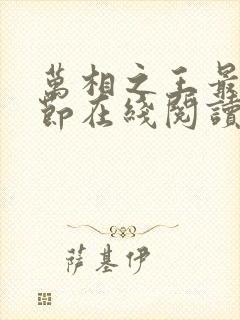 萬相之王最
節在綫閱讀
萨基伊